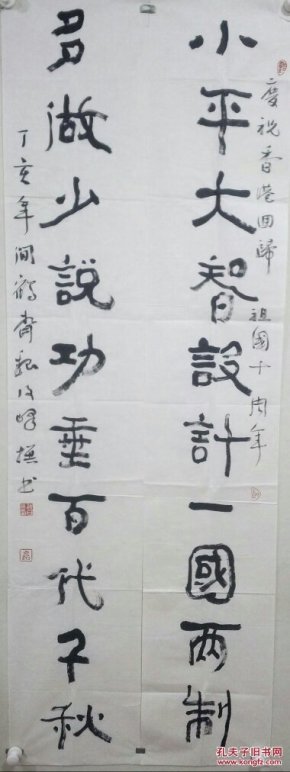 慶祝香港回歸祖國十周年
小平大智設計一國两制
多做少説功垂百代千秋
丁亥年 閒鶴齋 撰书
孔夫子旧书网